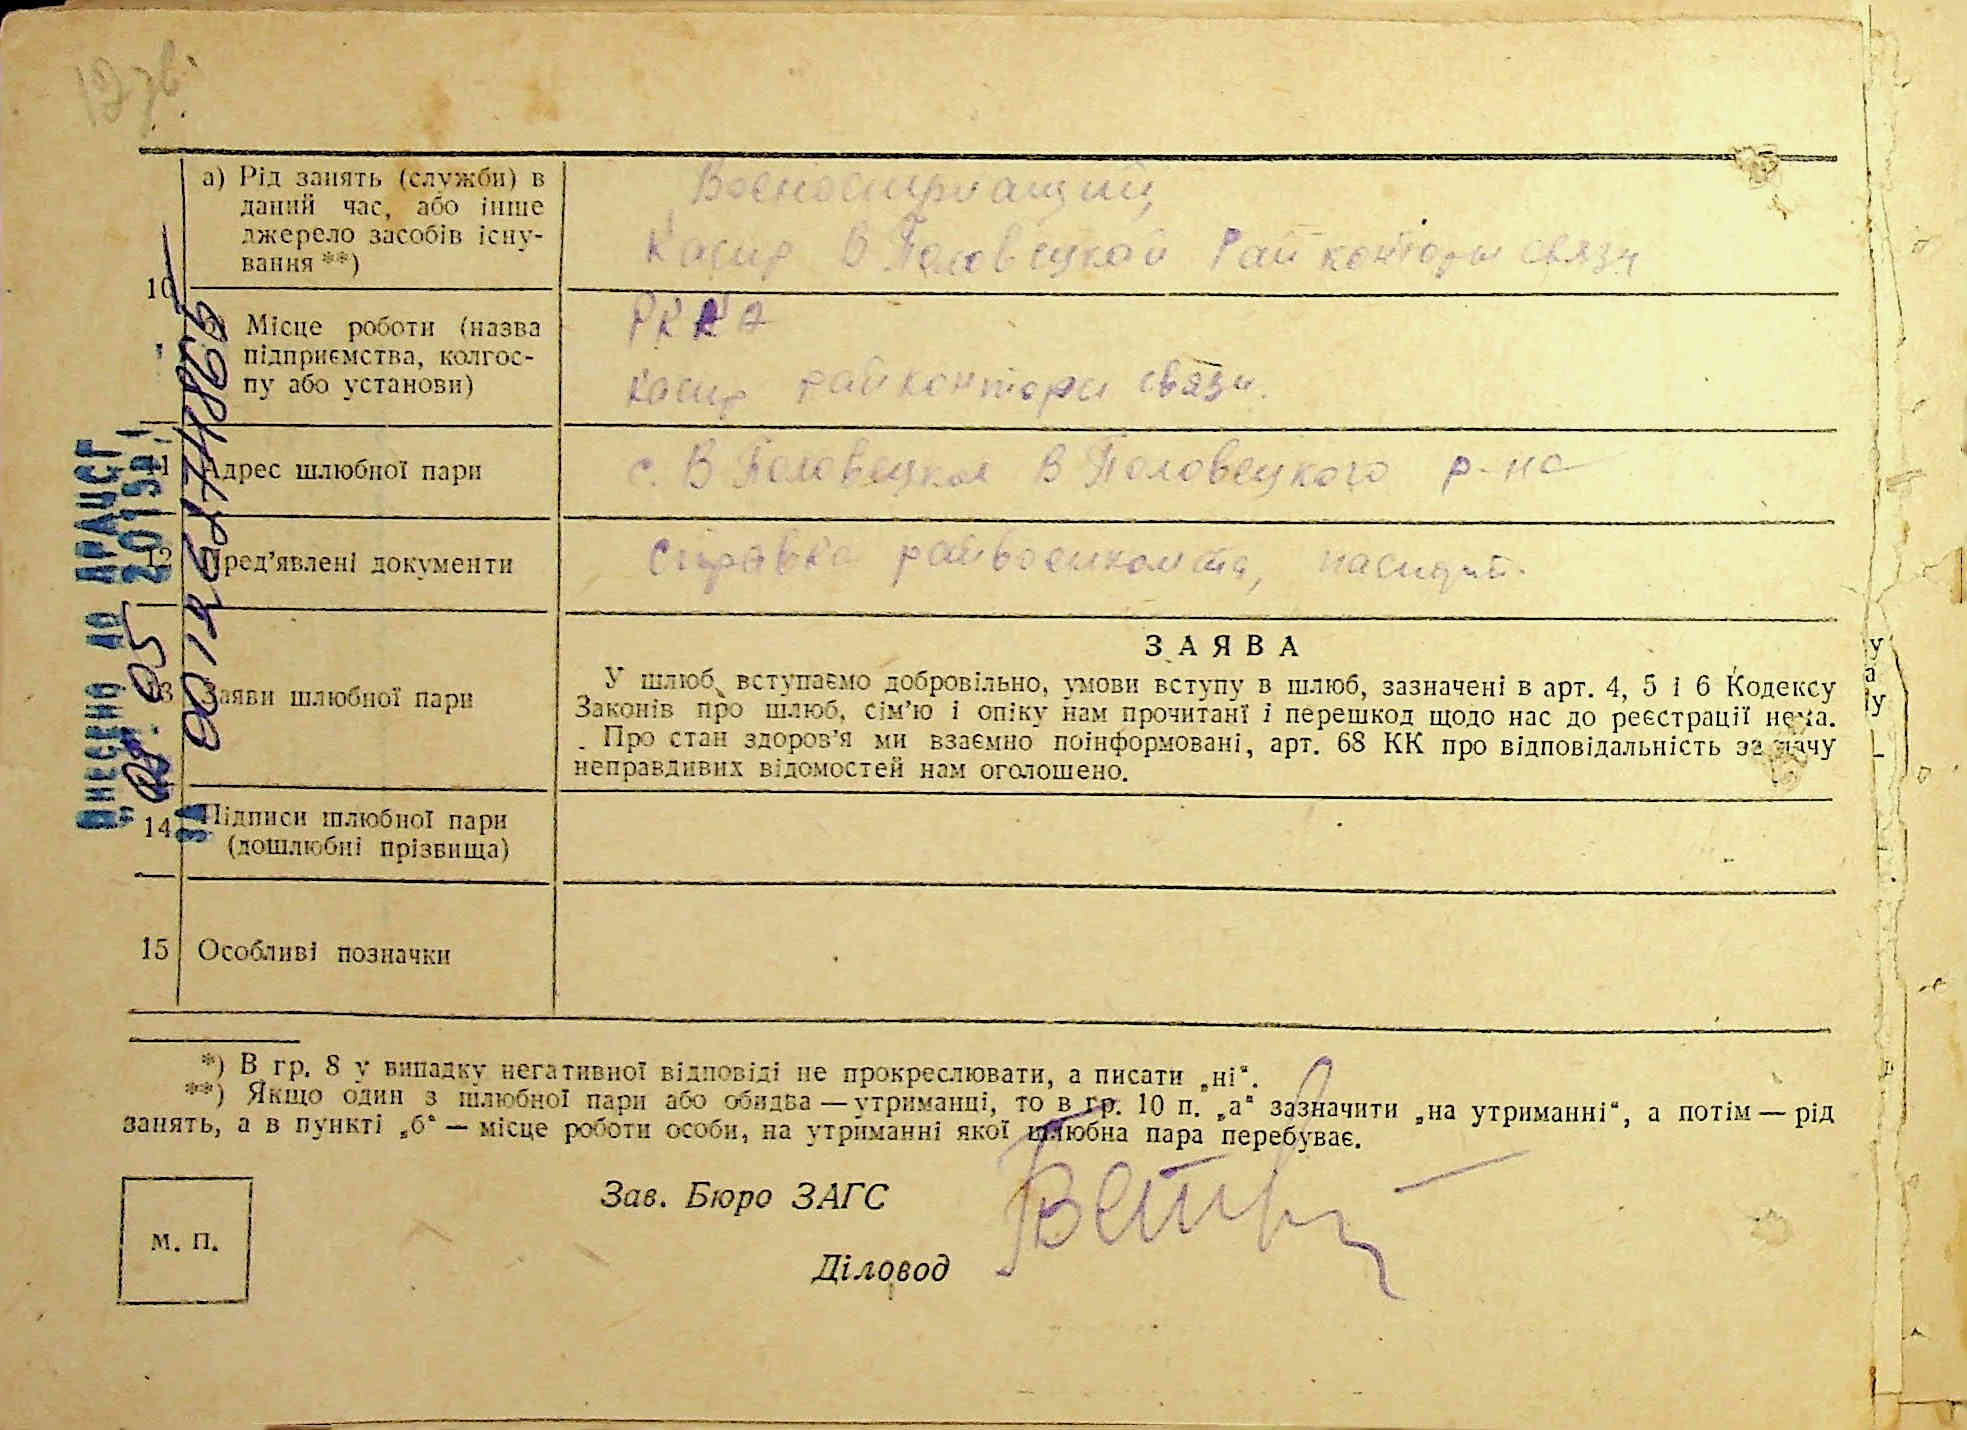 12 зв.
а) Рід занять (служби) в
даний час, або інше
джерело засобів існу-
вання **)
Касир В Половецкой Рай конторы связи
10
Місце роботи (назва
підприємства, колгос-
пу або установи)
РККА
касир райконтори связи.
11 Адрес шлюбної пари
с. В Половецкое В Половецкого р-на
12 Пред’явлені документи
справка райвоенкомата, паспорт.
13 Заяви шлюбної пари
ЗАЯВА
У шлюб вступаємо добровільно, умови вступу в шлюб, зазначені в арт. 4, 5 і 6 Кодексу
Законів про шлюб, сім’ю і опіку нам прочитані і перешкод щодо нас до реєстрації нема.
Про стан здоров’я ми взаємно поінформовані, арт. 68 КК про відповідальність за дачу
неправдивих відомостей нам оголошено.
14 Підписи шлюбної пари
(дошлюбні прізвища)
15 Особливі позначки
ВНЕСЕНО ДО ДРАЦСГ
05 2015
ЗА
*) В гр. 8 у випадку негативної відповіді не прокреслювати, а писати „ні“.
**) Якщо один з шлюбної пари або обидва — утриманці, то в гр. 10 п. „а“ зазначити „на утриманні“, а потім — рід
занять, а в пункті „б“ — місце роботи особи, на утриманні якої шлюбна пара перебуває.
Зав. Бюро ЗАГС
Діловод
М. П.